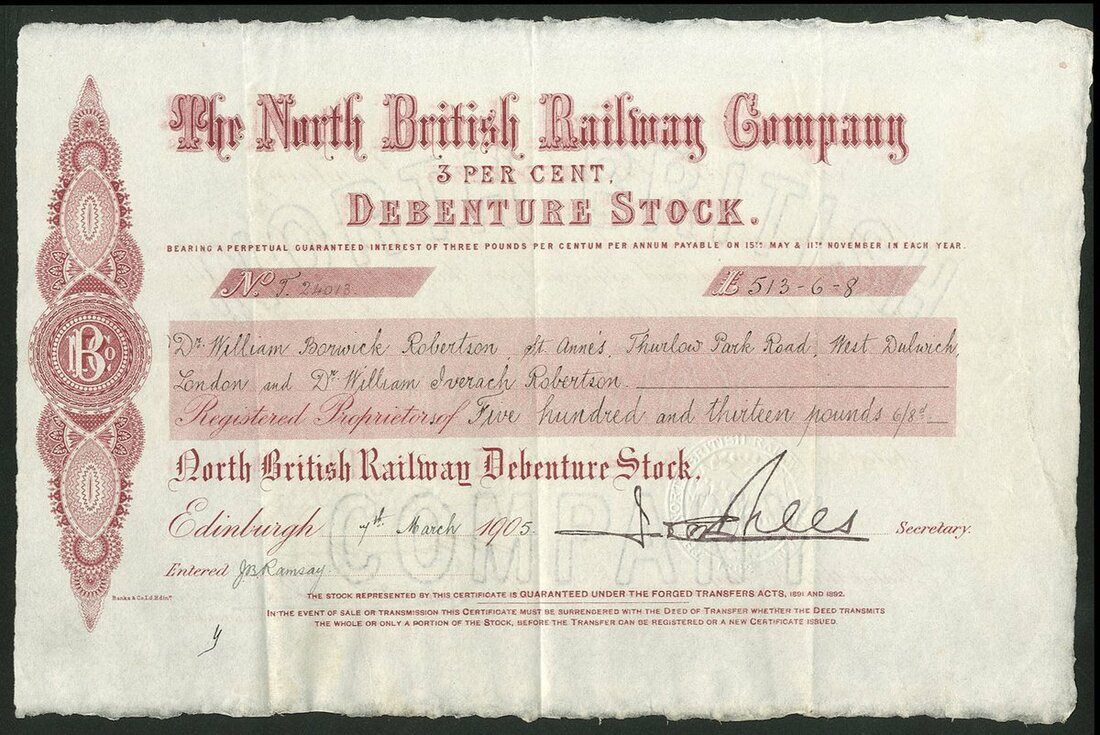 The North British Railway Company
3 PER CENT.
DEBENTURE STOCK.
BEARING A PERPETUAL GUARANTEED INTEREST OF THREE POUNDS PER CENTUM PER ANNUM PAYABLE ON 15TH MAY & 11TH NOVEMBER IN EACH YEAR.
No T. 24013 £ 513-6-8
Dr. William Borwick Robertson, St Anne's, Thurlow Park Road, West Dulwich,
London and Dr. William Iverach Robertson.
Registered Proprietors of Five hundred and thirteen pounds 6/8d
North British Railway Debenture Stock.
Edinburgh 7th March 1905. Secretary.
Entered J.B.Ramsay.
Banks & Co. Ld. Edinr.
THE STOCK REPRESENTED BY THIS CERTIFICATE IS GUARANTEED UNDER THE FORGED TRANSFERS ACTS, 1891 AND 1892.
IN THE EVENT OF SALE OR TRANSMISSION THIS CERTIFICATE MUST BE SURRENDERED WITH THE DEED OF TRANSFER WHETHER THE DEED TRANSMITS
THE WHOLE OR ONLY A PORTION OF THE STOCK, BEFORE THE TRANSFER CAN BE REGISTERED OR A NEW CERTIFICATE ISSUED.
NORTH BRITISH
COMPANY